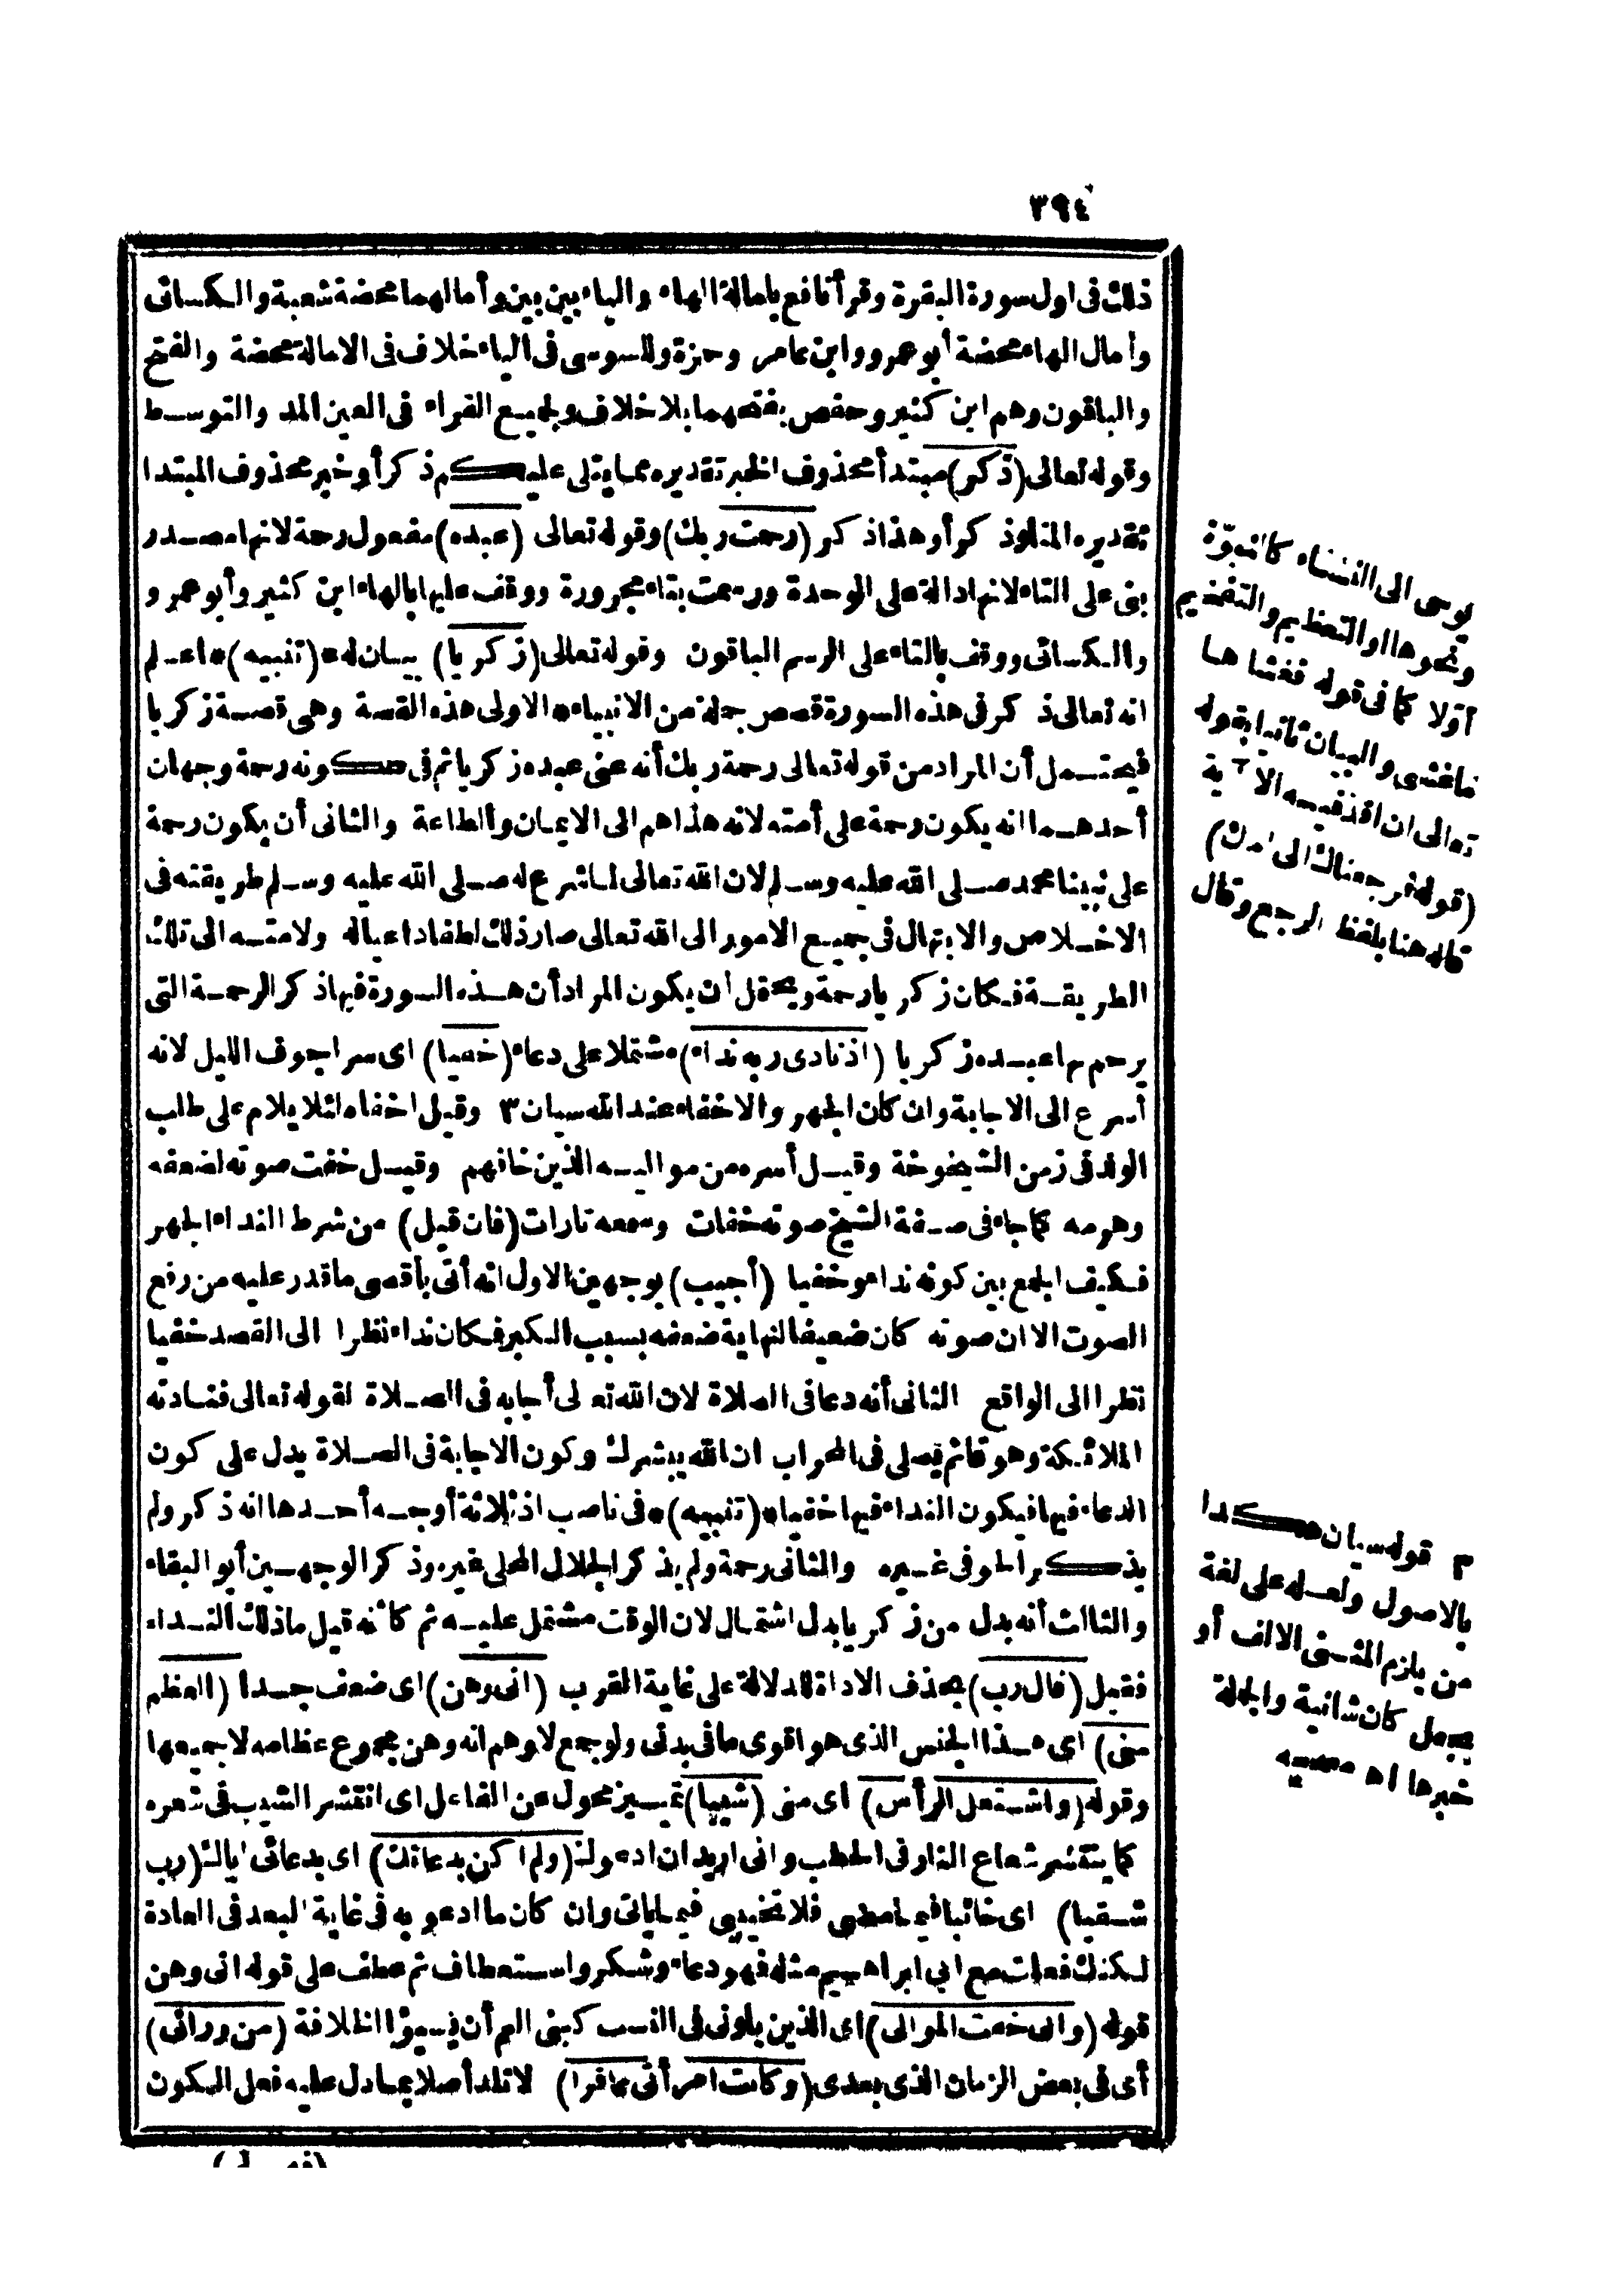 ٣٩٤
ذلك فى اول سورة البقرة وقرأ نافع بامالة الهاء والياء بين بين وأمالهما محضة شعبة والكسائى
وأمال الهاء محضة أبو عمرو وابن عامر وحمزة وللسوسى فى الياء خلاف فى الامالة محضة والفتح
والباقون وهم ابن كثير وحفص بفتحهما بلا خلاف ولجميع القراء فى العين المد والتوسط
وقوله تعالى (ذكر) مبتدأ محذوف الخبر تقديره مما يتلى عليكم ذكر أو خبر محذوف المبتدا
تقديره المتلو ذكر أو هذا ذكر (رحمت ربك) وقوله تعالى (عبده) مفعول رحمة لانها مصدر
بنى على التاء لانها دالة على الوحدة ورسمت بتاء مجرورة ووقف عليها بالهاء ابن كثير وأبو عمرو و
والكسائى ووقف بالتاء على الرسم الباقون وقوله تعالى (زكريا) بيان له *(تنبيه)* اعلم
انه تعالى ذكر فى هذه السورة قصص جملة من الانبياء * الاولى هذه القصة وهى قصة زكريا
فيحتمل أن المراد من قوله تعالى رحمة ربك أنه عنى عبده زكريا ثم فى كونه رحمة وجهان
أحدهما انه يكون رحمة على أمته لانه هداهم الى الايمان والطاعة والثانى أن يكون رحمة
على نبينا محمد صلى الله عليه وسلم لان الله تعالى لما شرع له صلى الله عليه وسلم طريقته فى
الاخلاص والابتهال فى جميع الامور الى الله تعالى صار ذلك لطفا داعيا له ولامته الى تلك
الطريقة فكان زكريا رحمة ويحتمل أن يكون المراد أن هذه السورة فيها ذكر الرحمة التى
يرحم بها عبده زكريا (اذ نادى ربه نداء) مشتملا على دعاء (خفيا) اى سرا جوف الليل لانه
أسرع الى الاجابة وان كان الجهر والاخفاء عند الله سيان ٣ وقيل اخفاه لئلا يلام على طلب
الولد فى زمن الشيخوخة وقيل أسره من مواليه الذين خافهم وقيل خفت صوته لضعفه
وهرمه كما جاء فى صفة الشيخ صوته خفات وسمعه تارات (فان قيل) من شرط النداء الجهر
فكيف الجمع بين كونه نداء وخفيا (أجيب) بوجهين الاول انه أتى بأقصى ما قدر عليه من رفع
الصوت الا ان صوته كان ضعيفا لنهاية ضعفه بسبب الكبر فكان نداء نظرا الى القصد خفيا
نظرا الى الواقع الثانى أنه دعا فى الصلاة لان الله تعالى أجابه فى الصلاة لقوله تعالى فنادته
الملائكة وهو قائم يصلى فى المحراب ان الله يبشرك وكون الاجابة فى الصلاة يدل على كون
الدعاء فيها فيكون النداء فيها خفيا *(تنبيه)* فى ناصب اذ ثلاثة أوجه أحدها انه ذكر ولم
يذكر الحوفى غيره والثانى رحمة ولم يذكر الجلال المحلى غيره وذكر الوجهين أبو البقاء
والثالث أنه بدل من زكريا بدل اشتمال لان الوقت مشتمل عليه ثم كأنه قيل ما ذلك النداء
فقيل (قال رب) بحذف الاداة للدلالة على غاية القرب (انى وهن) اى ضعف جدا (العظم
منى) اى هذا الجنس الذى هو اقوى ما فى بدنى ولو جمع لاوهم انه وهن مجموع عظامه لا جميعها
وقوله (واشتعل الرأس) اى منى (شيبا) تمييز محول عن الفاعل اى انتشر الشيب فى شعره
كما ينتشر شعاع النار فى الحطب وانى اريد ان ادعوك (ولم اكن بدعائك) اى بدعائى اياك (رب
شقيا) اى خائبا فيما مضى فلا تخيبنى فيما ياتى وان كان ما ادعو به فى غاية البعد فى العادة
لكنك فعلت مع ابى ابراهيم مثله فهو دعاء وشكر واستعطاف ثم عطف على قوله انى وهن
قوله (وانى خفت الموالى) اى الذين يلونى فى النسب كبنى العم أن يسيؤا الخلافة (من ورائى)
أى فى بعض الزمان الذى بعدى (وكانت امرأتى عاقرا) لا تلد أصلا بما دل عليه فعل الكون
يوحى الى النساء كانه قوة
ونحوها او التعظيم والتفخيم
أولا كما فى قوله فغشاها
ما غشى والبيان ثانيا بقوله
تعالى ان اقذفيه الآية
(قوله فرجعناك الى امك)
قاله هنا بلفظ الرجع وقال
٣ قوله سيان هكذا
بالاصول ولعله على لغة
من يلزم المثنى الالف أو
يجعل كان شانية والجملة
خبرها اه مصححه